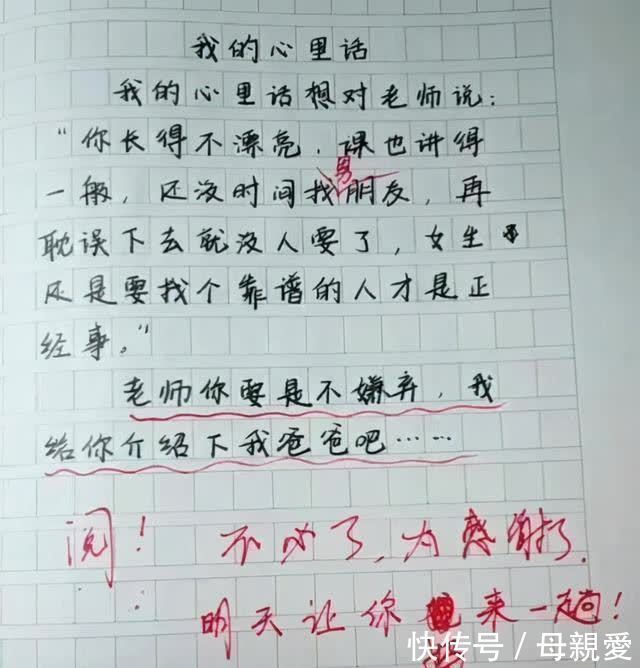 我的心里话
我的心里话想对老师说：
“你长得不漂亮，课也讲得
一般，还没时间找男朋友，再
耽误下去就没人要了，女生
还是要找个靠谱的人才是正
经事。”
老师你要是不嫌弃，我
给你介绍下我爸爸吧……
阅！不必了，为感谢
明天让你来一趟！
快传号／母親愛